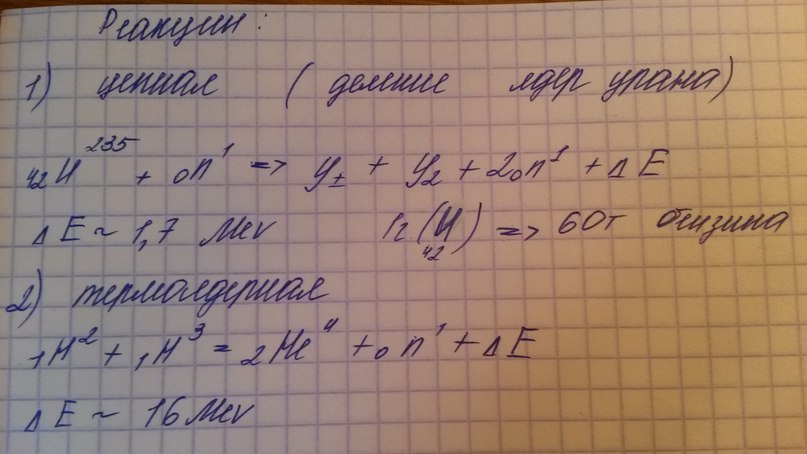 Реакции:
1) цепная (деление ядер урана)
₄₂U²³⁵ + ₀n¹ => Y₁ + Y₂ + 2₀n¹ + ΔE
ΔE ~ 1,7 Mev 1г (₄₂U) => 60т бензина
2) термоядерная
₁H² + ₁H³ = ₂He⁴ + ₀n¹ + ΔE
ΔE ~ 16 Mev